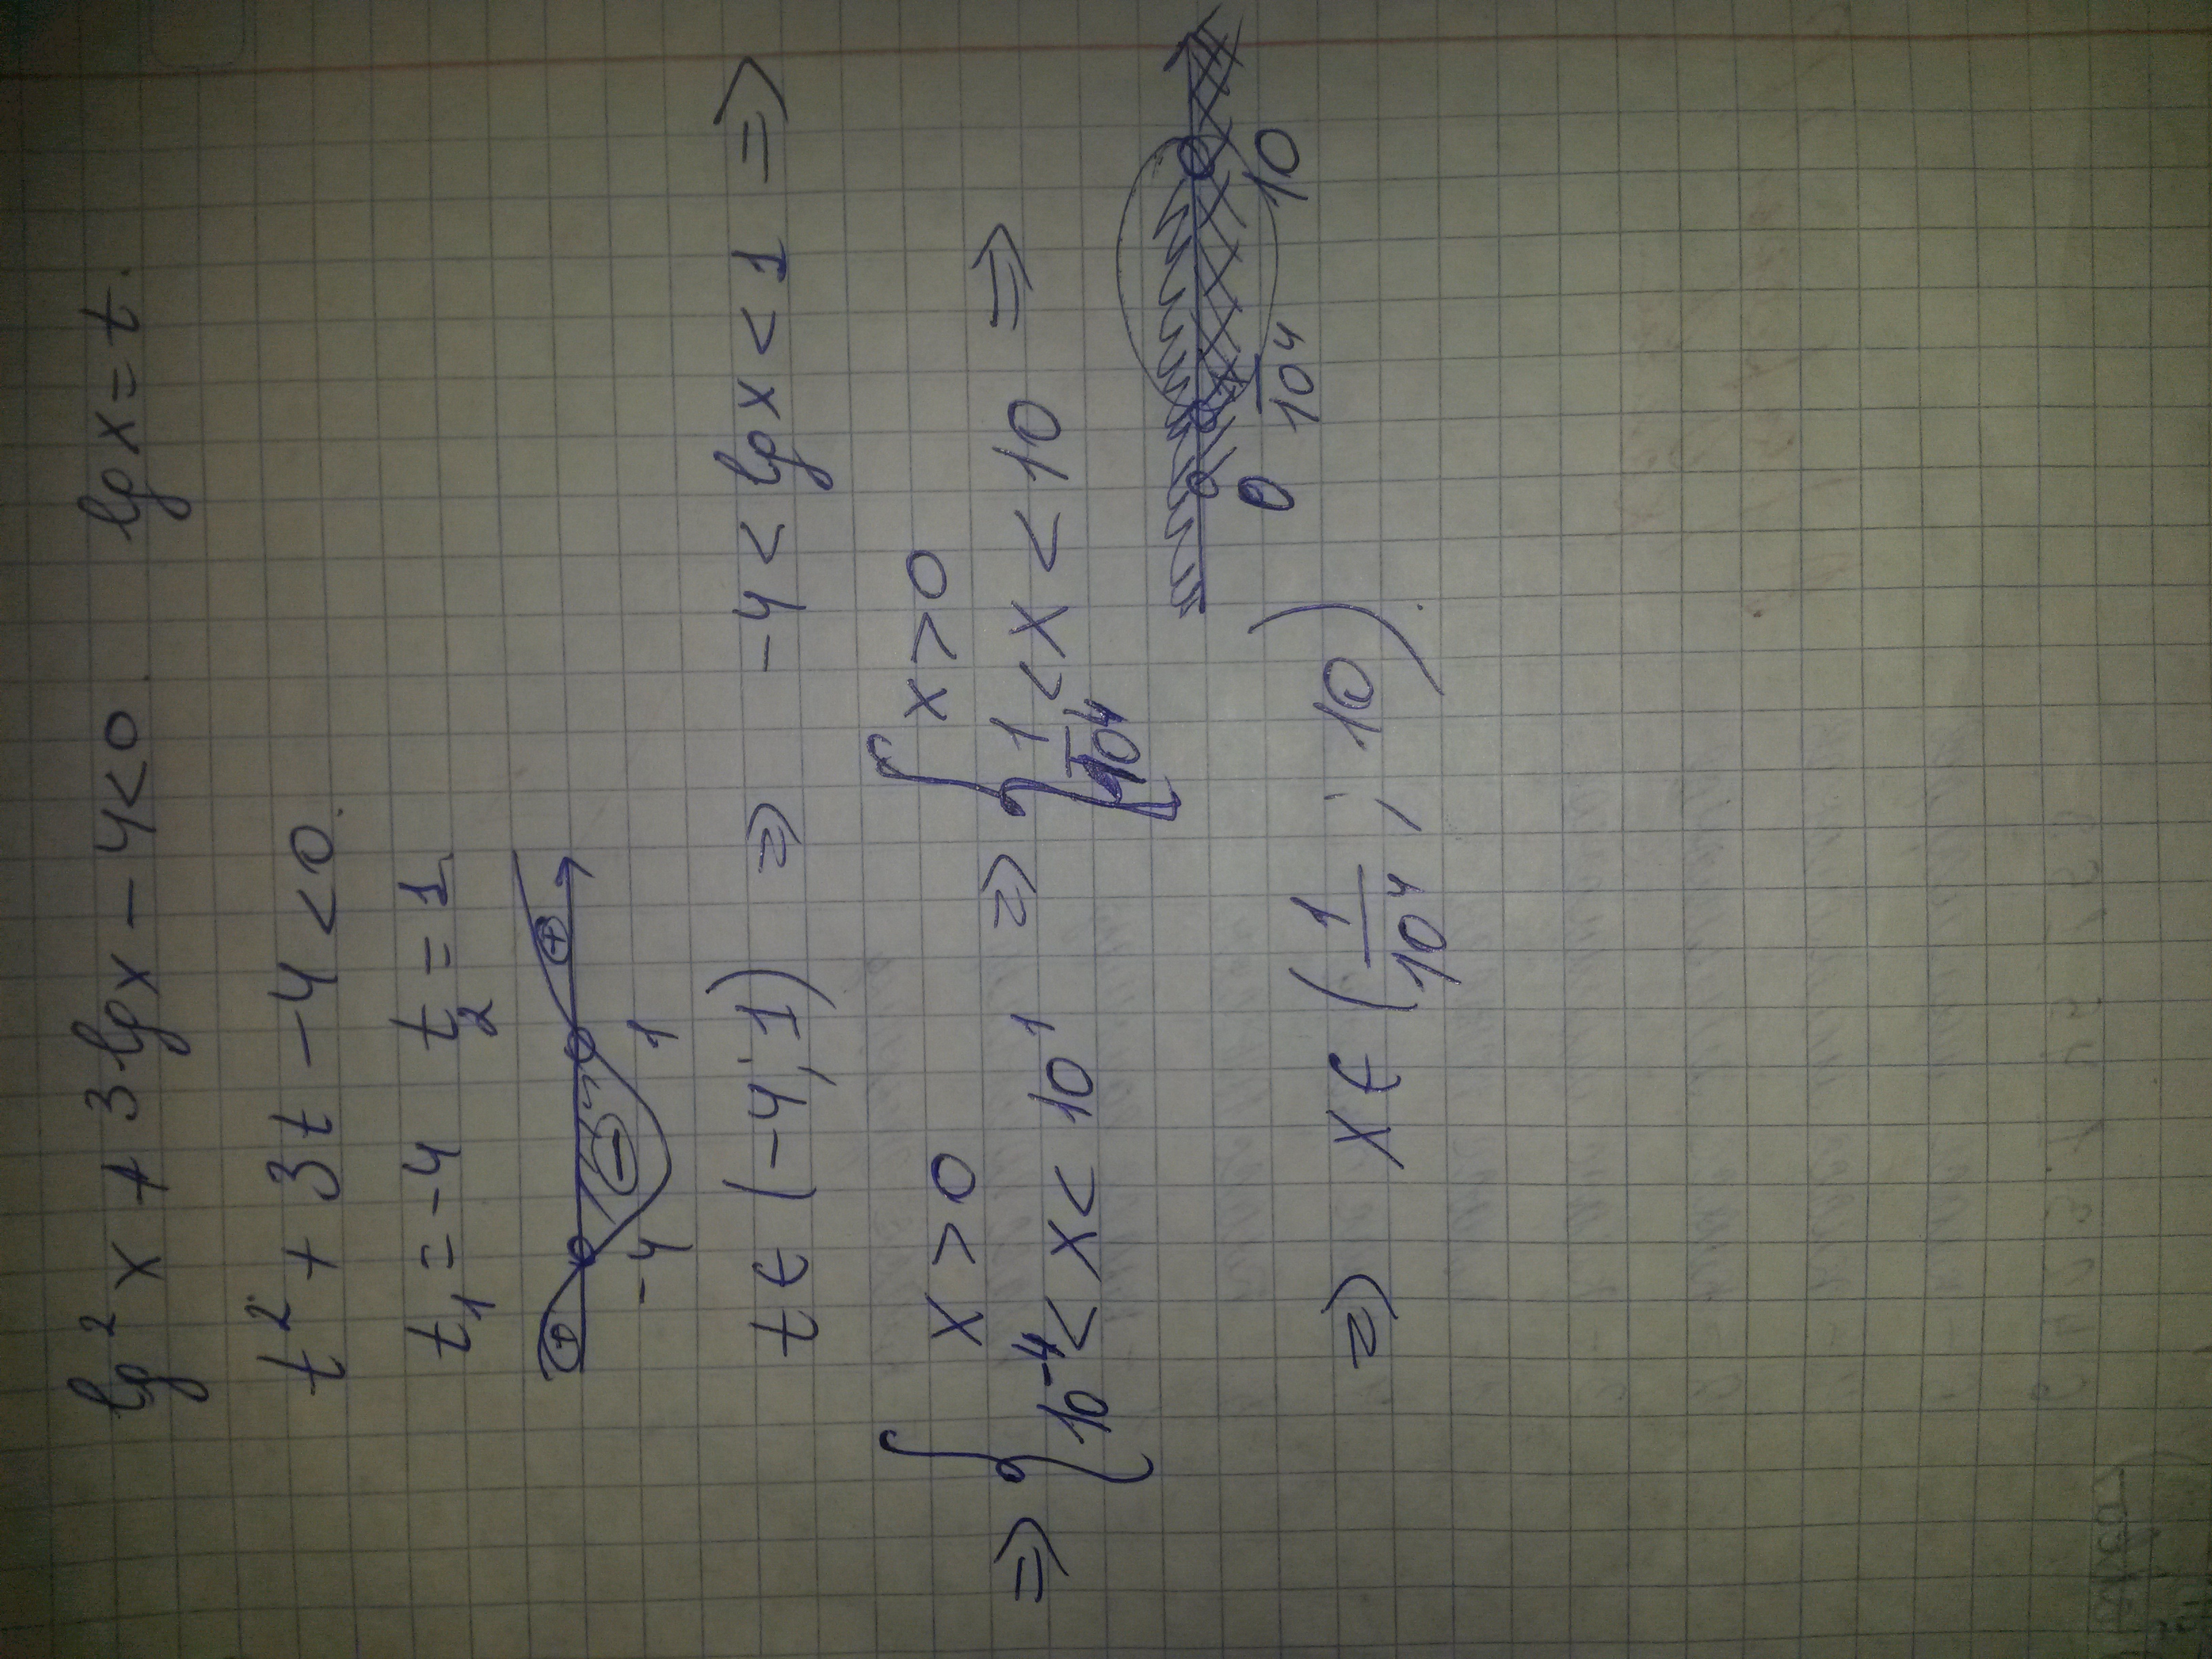 lg² x + 3 lg x − 4 < 0. lg x = t.
t² + 3t − 4 < 0.
t₁ = −4 t₂ = 1
+ − +
−4 1
t ∈ (−4; 1) ⇒ −4 < lg x < 1 ⇒
⇒ { x > 0 ⇒ { x > 0
10⁻⁴ < x < 10¹ 1/10⁴ < x < 10 ⇒
0 1/10⁴ 10
⇒ x ∈ (1/10⁴; 10).